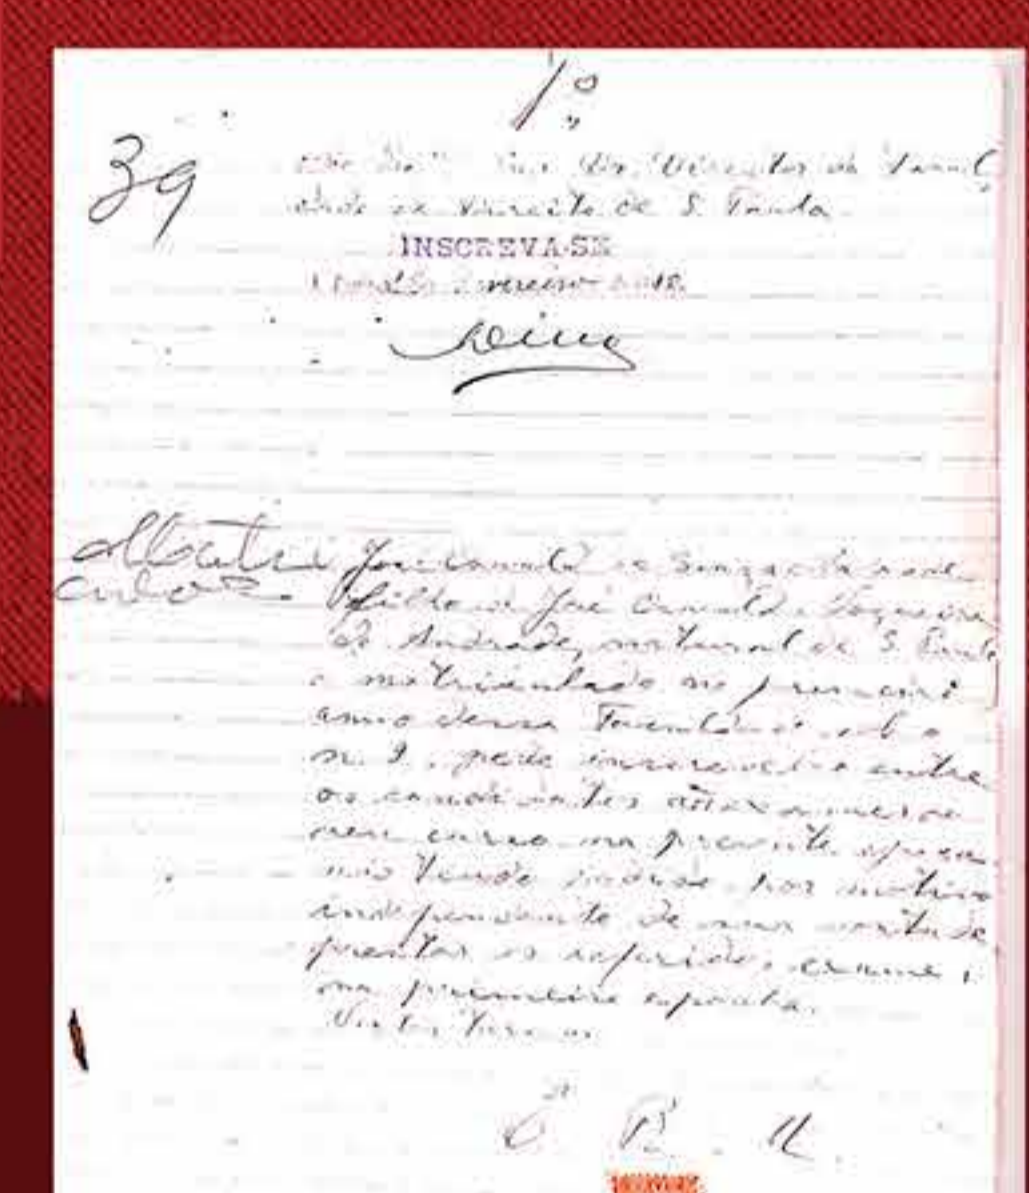 1º
39
Dr. Director da Facul
dade de Direito de S. Paulo
INSCREVA-SE
José Oswald de Souza Andrade
filho de José Oswald Nogueira
de Andrade, natural de S. Paulo
e matriculado no primeiro
anno dessa Faculdade sob o
n. 9, pede inscrever-se entre
os candidatos aos exames de
seu curso na presente epoca
não tendo podido por motivo
independente de sua vontade
prestar os referidos exames
na primeira epocha.
Nestes termos
E. R. M.